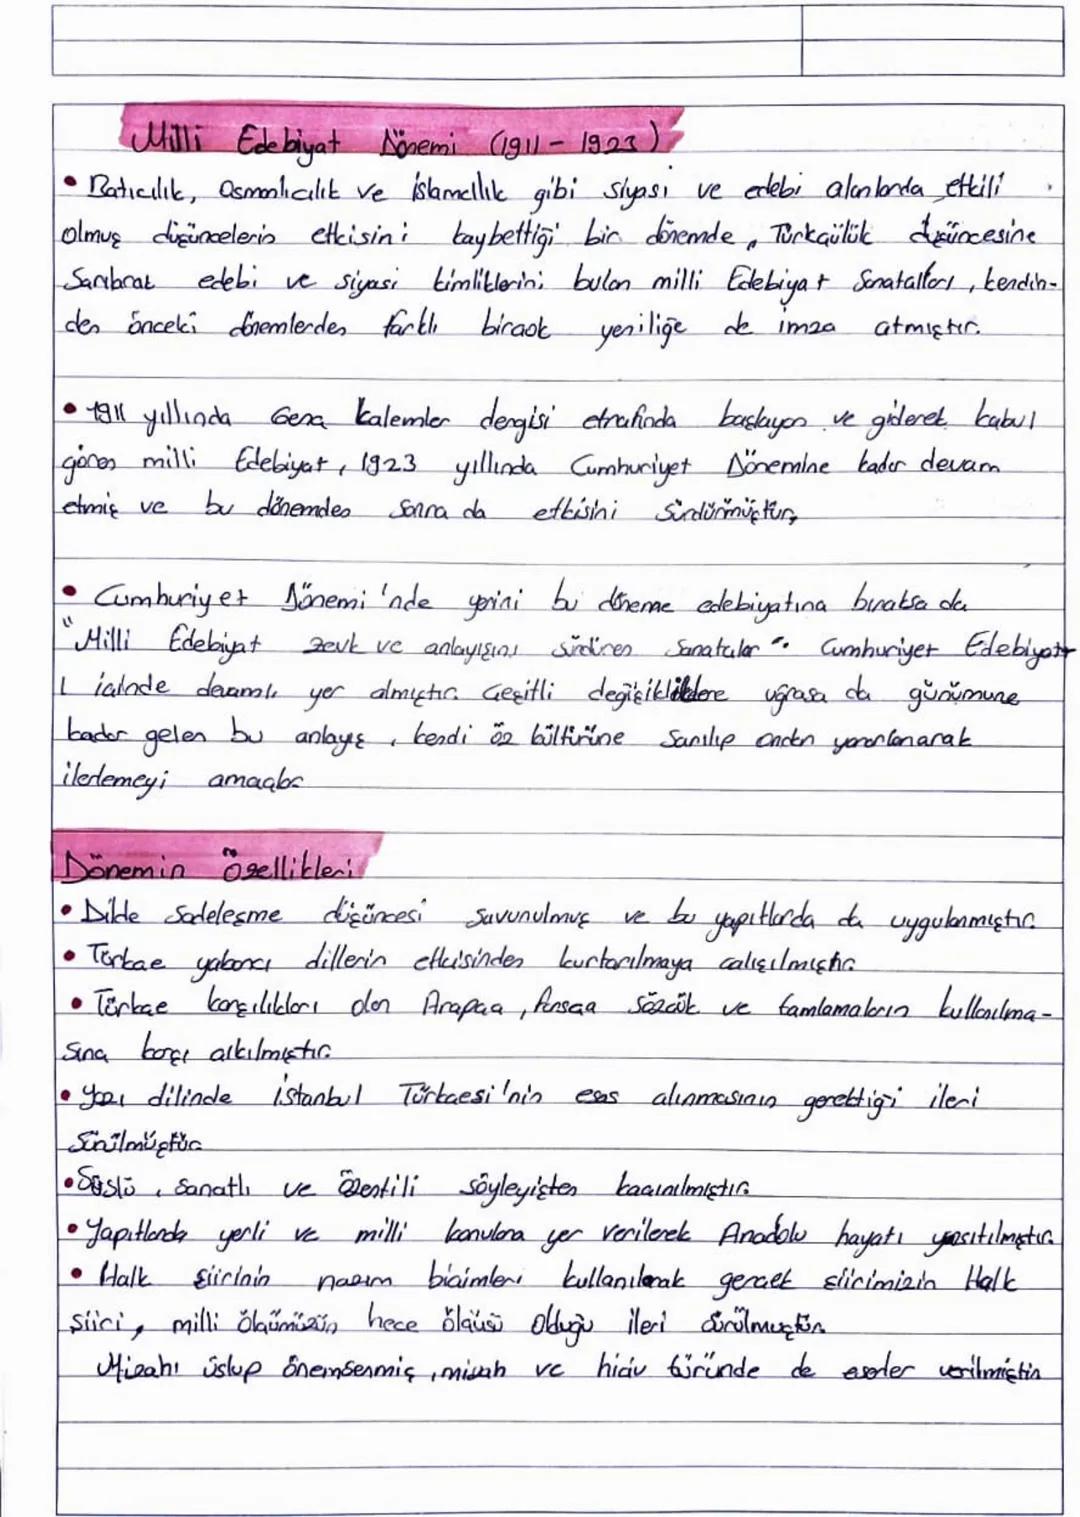 Milli Edebiyat Dönemi (1911 - 1923)
• Batıcılık, Osmanlıcılık ve İslamcılık gibi siyası ve edebi alanlarda etkili
olmuş düşüncelerin etkisini kaybettiği bir dönemde, Türkçülük düşüncesine
Sarılarak edebi ve siyasi kimliklerini bulan milli Edebiyat Sanatçıları, kendin-
den önceki dönemlerden farklı birçok yeniliğe de imza atmıştır.
• 1911 yıllında Genç Kalemler dergisi etrafında başlayan ve giderek kabul
gören milli Edebiyat, 1923 yıllında Cumhuriyet Dönemine kadar devam
etmiş ve bu dönemden sonra da etkisini Sürdürmüştür,
• Cumhuriyet Dönemi'nde yerini bu döneme edebiyatına bıraksa da
"Milli Edebiyat zevk ve anlayışını sürdüren Sanatçılar". Cumhuriyet Edebiyat
ı içinde devamlı yer almıştır. Çeşitli değişikliklere uğrasa da günümüne
kadar gelen bu anlayış, kendi öz kültürüne Sarılıp ondan yararlanarak
ilerlemeyi amaçlar
Dönemin Özellikleri
• Dilde Sadeleşme düşüncesi Savunulmuş ve bu yapıtlarda da uygulanmıştır.
• Türkçe yabancı dillerin etkisinden kurtarılmaya çalışılmıştır.
• Türkçe karşılıkları olan Arapça, Farsça Sözcük ve tamlamaların kullanılma-
sına karşı çıkılmıştır.
• Yazı dilinde İstanbul Türkçesi'nin esas alınmasının gerektiği ileri
Sürülmüştür.
• Süslü, Sanatlı ve Özentili söyleyişten kaçınılmıştır.
• Yapıtlarda yerli ve milli konulara yer verilerek Anadolu hayatı yansıtılmıştır.
• Halk Şiirinin nazım biçimleri kullanılarak gerçek şiirimizin Halk
şiiri, milli ölçümüzün hece ölçüsü Olduğu ileri Sürülmüştür.
Mizahı üslup önemsenmiş, mizah ve hiciv türünde de eserler verilmiştir